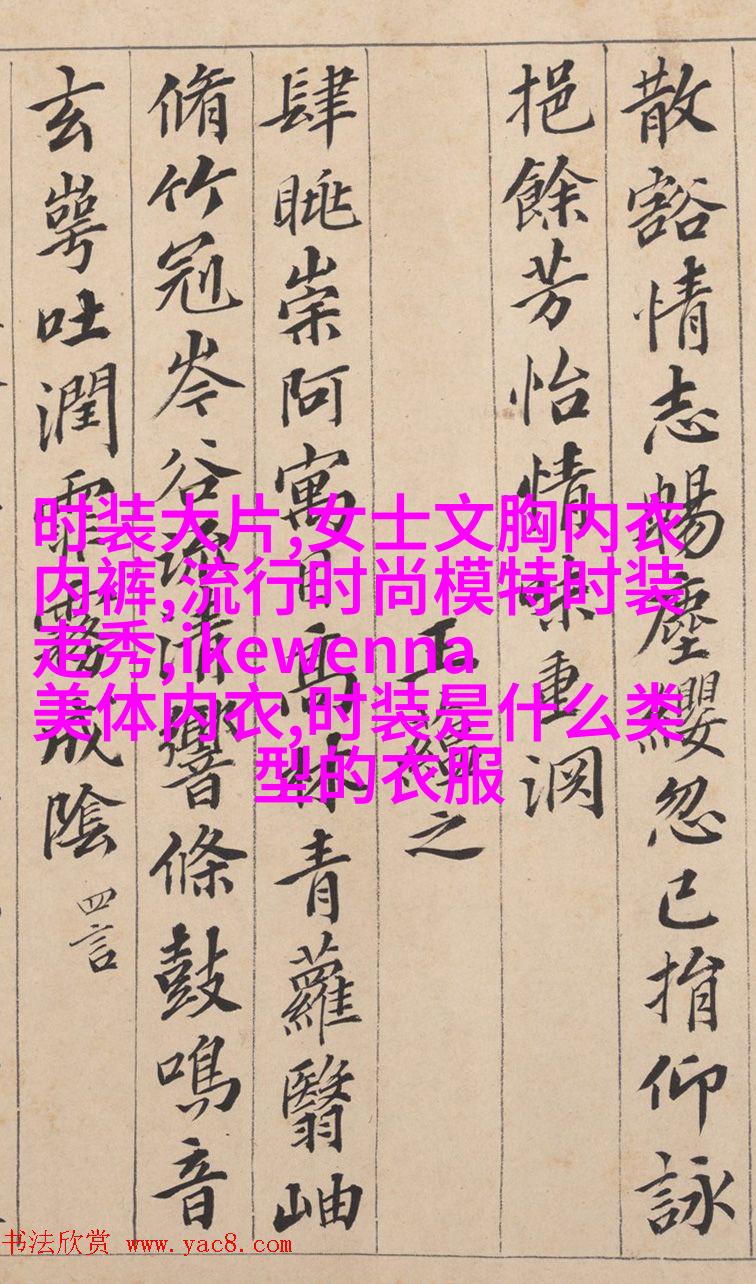 散豁情志暢塵纓忽已捐仰詠
挹餘芳怡情味重淵
王蘊之
肆眺崇阿寓目高林青蘿翳岫
脩竹冠岑谷流清響條鼓鳴音
玄崿吐潤霏霧成陰
四言
时装大片,女士文胸内衣
内裤,流行时尚模特时装
走秀,ikewenna
美体内衣,时装是什么类
型的衣服
书法欣赏 www.yac8.com